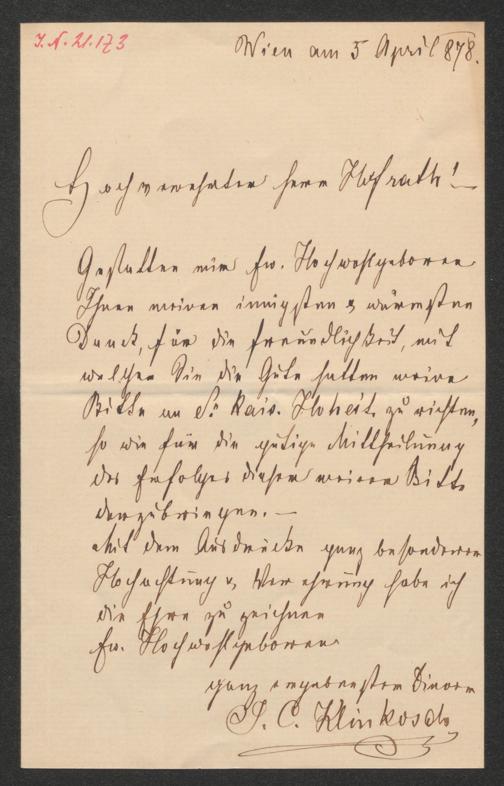 J. N. 21.173
Wien am 5 April 878.
Hochverehrter Herr Hofrath! —
Gestatten mir Ew. Hochwohlgeboren
Ihnen meinen innigsten & wärmsten
Dank, für die Freundlichkeit, mit
welcher Sie die Güte hatten meine
Bitte an S. kais. Hoheit zu richten,
so wie für die gütige Mittheilung
des Erfolges dieser meiner Bitte
darzubringen. —
Mit dem Ausdrucke ganz besonderer
Hochachtung u. Verehrung habe ich
die Ehre zu zeichnen
Ew. Hochwohlgeboren
ganz ergebenster Diener
J. C. Klinkosch